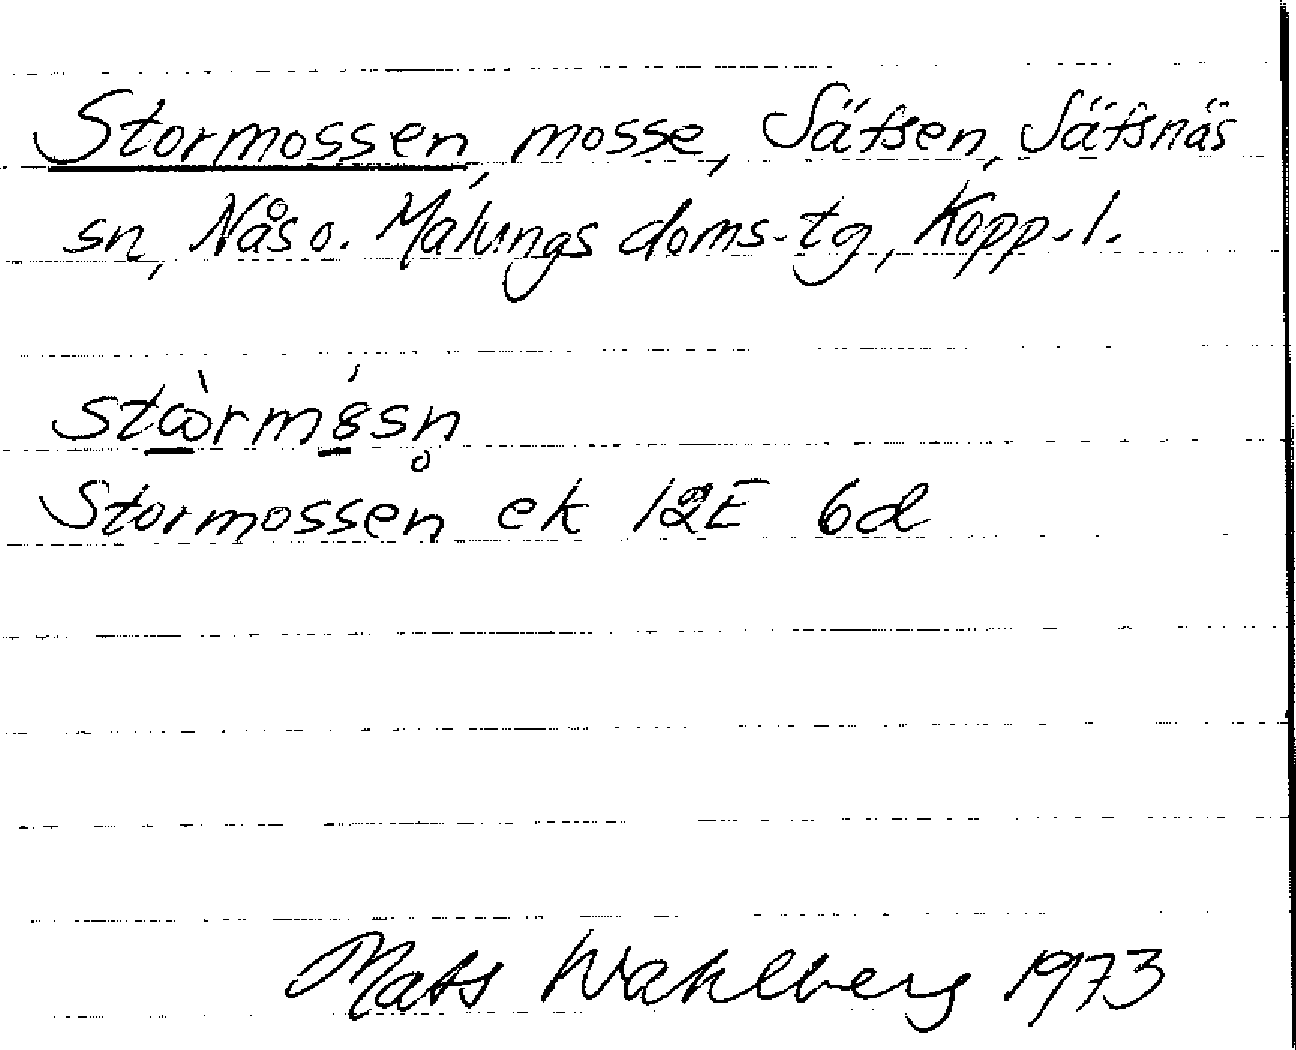 Stormossen, mosse, Säfsen, Säfsnäs
sn, Nås o. Malungs doms.tg, Kopp.l.
stꞷ̀rmśsn̥
Stormossen ek 12E 6d
Mats Wahlberg 1973